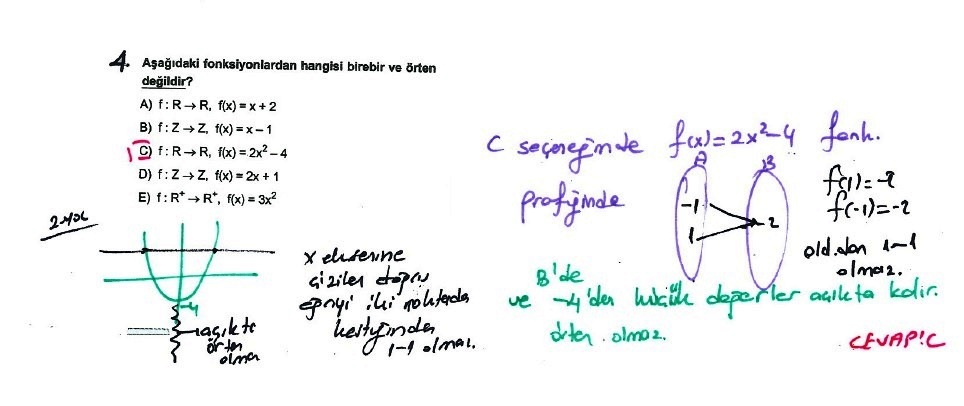 4. Aşağıdaki fonksiyonlardan hangisi birebir ve örten
değildir?
A) f : R → R, f(x) = x + 2
B) f : Z → Z, f(x) = x – 1
C) f : R → R, f(x) = 2x² – 4
D) f : Z → Z, f(x) = 2x + 1
E) f : R⁺ → R⁺, f(x) = 3x²
2.yol
-4
açıkta
örten
olmaz
x eksenine
çizilen doğru
eğriyi iki noktada
kestiğinden
1-1 olmaz.
C seçeneğinde f(x)=2x²-4 fonk.
grafiğinde
A
B
-1
1
-2
f(1)=-2
f(-1)=-2
old.dan 1-1
olmaz.
B'de
ve -4'den küçük değerler açıkta kalır.
örten olmaz.
CEVAP:C